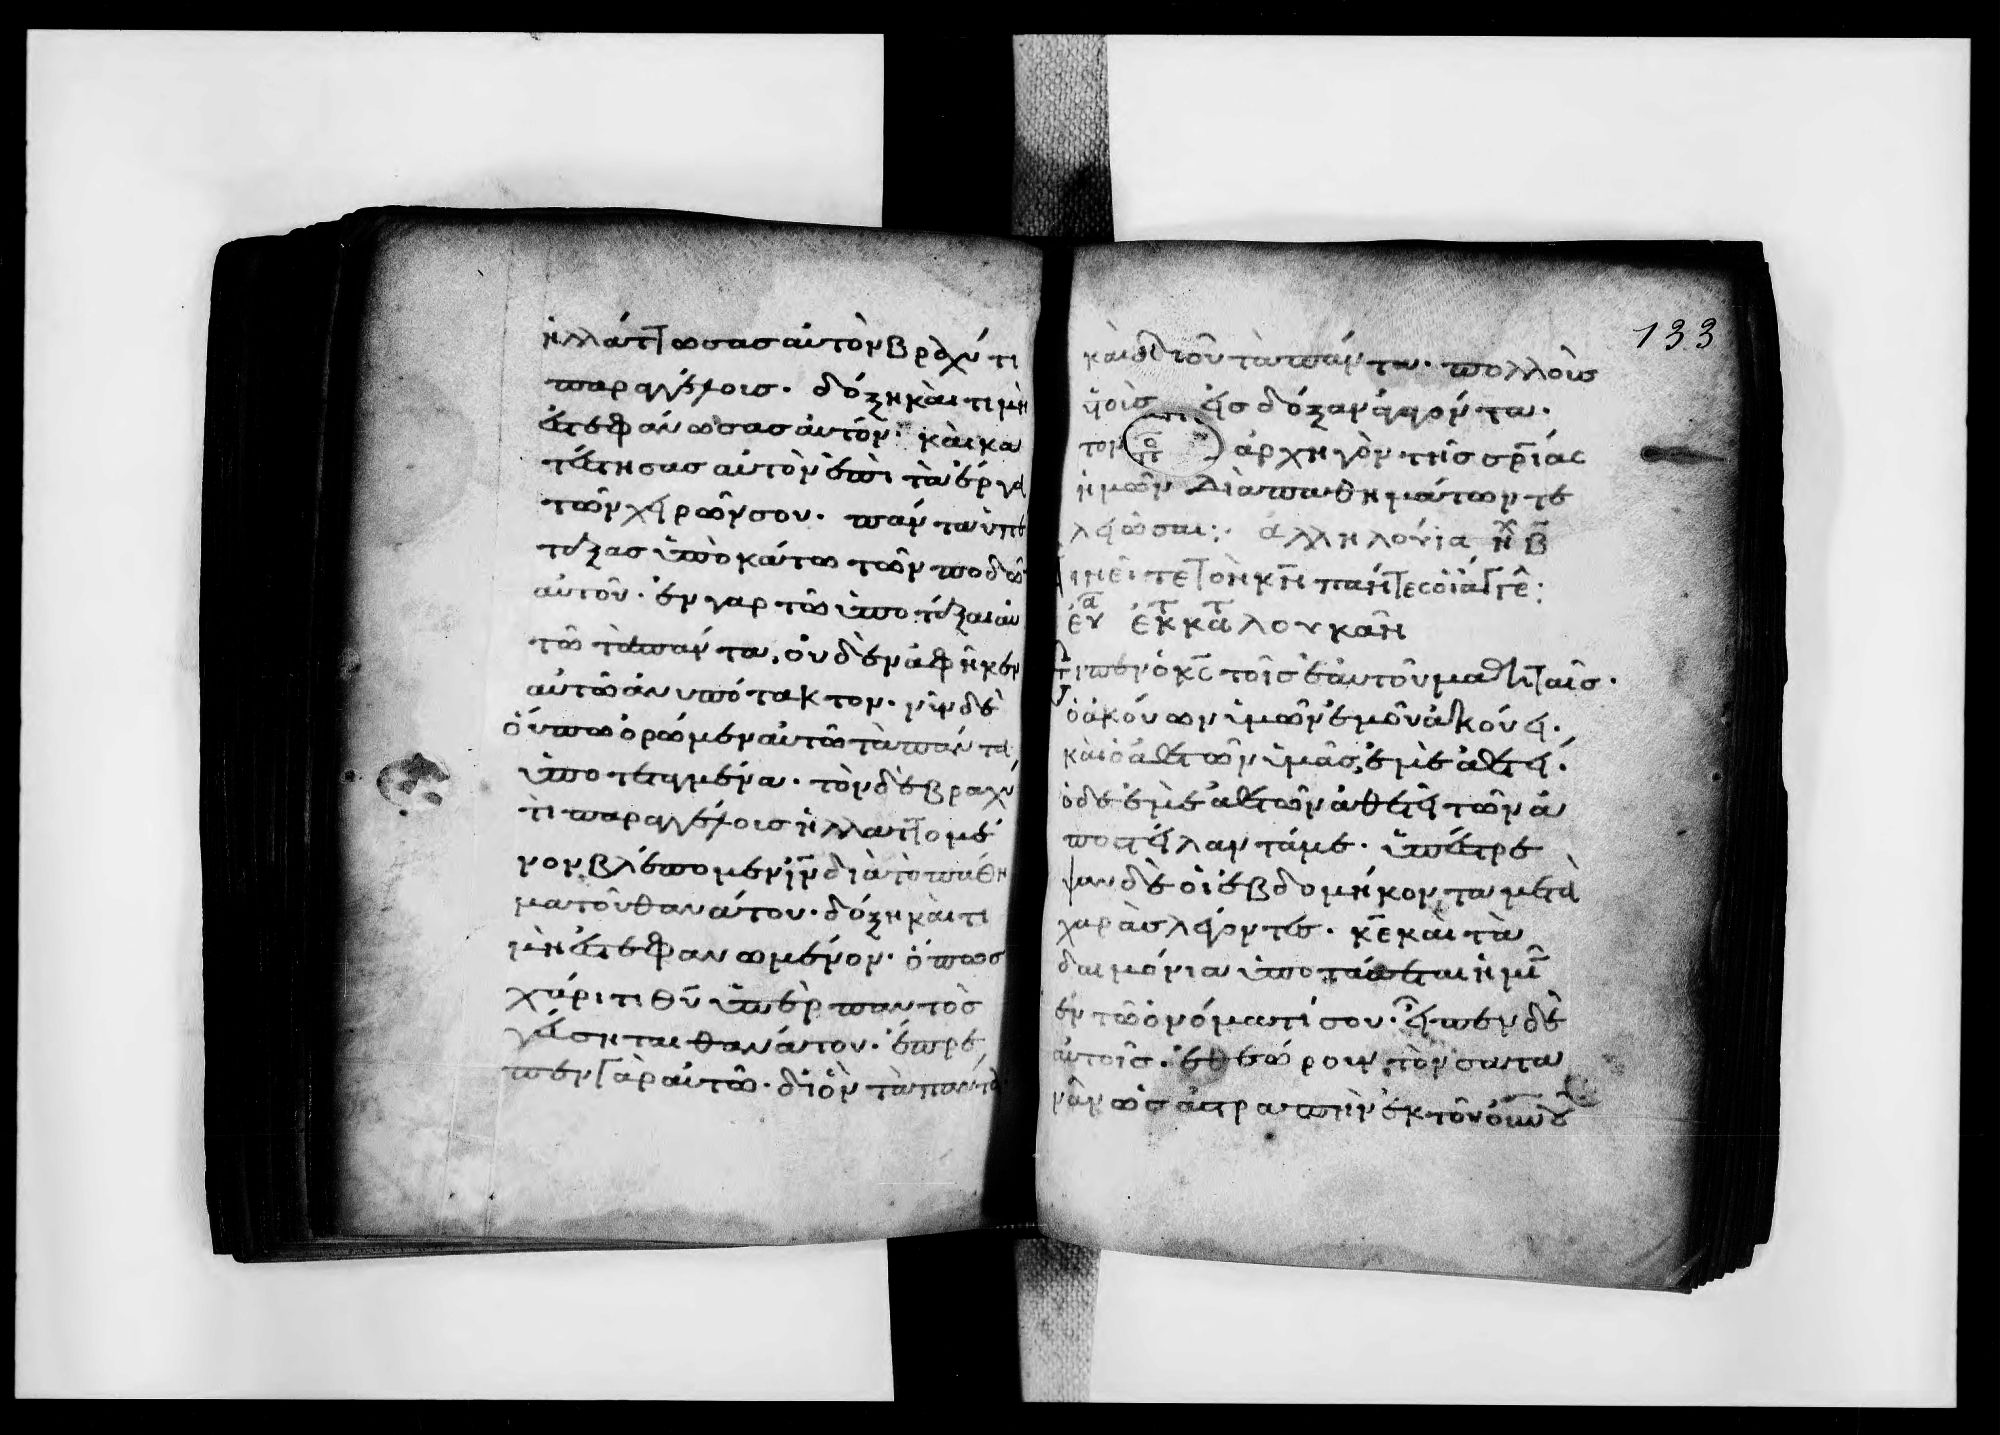 ἠλλάττωσας αὐτὸν βρἀχύ τι
παραγγέλοις. δόξη καὶ τιμὴ
ἐστεφάνωσας ἀυτόν. καὶ κα
τέστησας αὐτὸν ἐπὶ τὰ ἔργα
τῶν χειρῶν σου. πάντα ὑπέ
ταξας ὑποκάτω τῶν ποδῶ
αὐτοῦ. ἐν γαρ τῶ ὑποτάξαι αὐ
τῶ τὰ πάντα, οὐδὲν ἀφῆκεν
αὐτῶ ἀνυπότακτον. νῦν δὲ
οὔπω ὁρῶμεν αὐτῶ τὰ πάντα
ὑποτεταγμένα. τὸν δὲ βραχύ
τι παραγγέλοις ἠλλαττομέ
νον βλέπομεν ιν̅ διὰ τὸ πάθη
μα τοῦ θανάτου. δόξη καὶ τι
μὴ ἐστεφανωμένον. ὅπως
χάριτι θυ̅ ὑπὲρ παντὸς
γεύσηται θανάτου. ἔπρε
πεν γὰρ αὐτῶ. δι ὃν τὰ πάντα
133
καὶ δι οὗ τὰ πάντα. πολλοὺς
υ̅οὺς εἰς δόξαν ἀγαγόντα.
τον ἀρχηγὸν τῆς σρ̅ίας
ἡμῶν διὰ παθημάτων τε
λειῶσαι: ἀλληλούϊα ἦχ β̅
αἰνεῖτε τὸν κν̅ πάντες οἱ ἄγγε:
ἐυα ἐκ τ κατ λουκᾶν
εἶπεν ὁ κς̅ τοῖς ἑαυτοῦ μαθηταῖς.
ὁ ἀκούων ὑμῶν ἐμοῦ ἀκούει.
καὶ ὁ ἀθετῶν ὑμᾶς, ἐμὲ ἀθετεῖ.
ὁ δὲ ἐμὲ ἀθετῶν ἀθετεῖ τὼν ἀ
ποστείλαντά με. ὑπέστρε
ψαν δὲ οἱ ἑβδομήκοντα μετὰ
χαρᾶς λέγοντες. κε̅ καὶ τὰ
δαιμόνια ὑποτάσσεται ἡμῖ
ἐν τῶ ὀνόματί σου. εἶπεν δὲ
ἀυτοῖς. ἐθεώρουν τὸν σατα
νᾶν ὡς ἀστραπὴν ἐκ τοῦ οὐνου̅